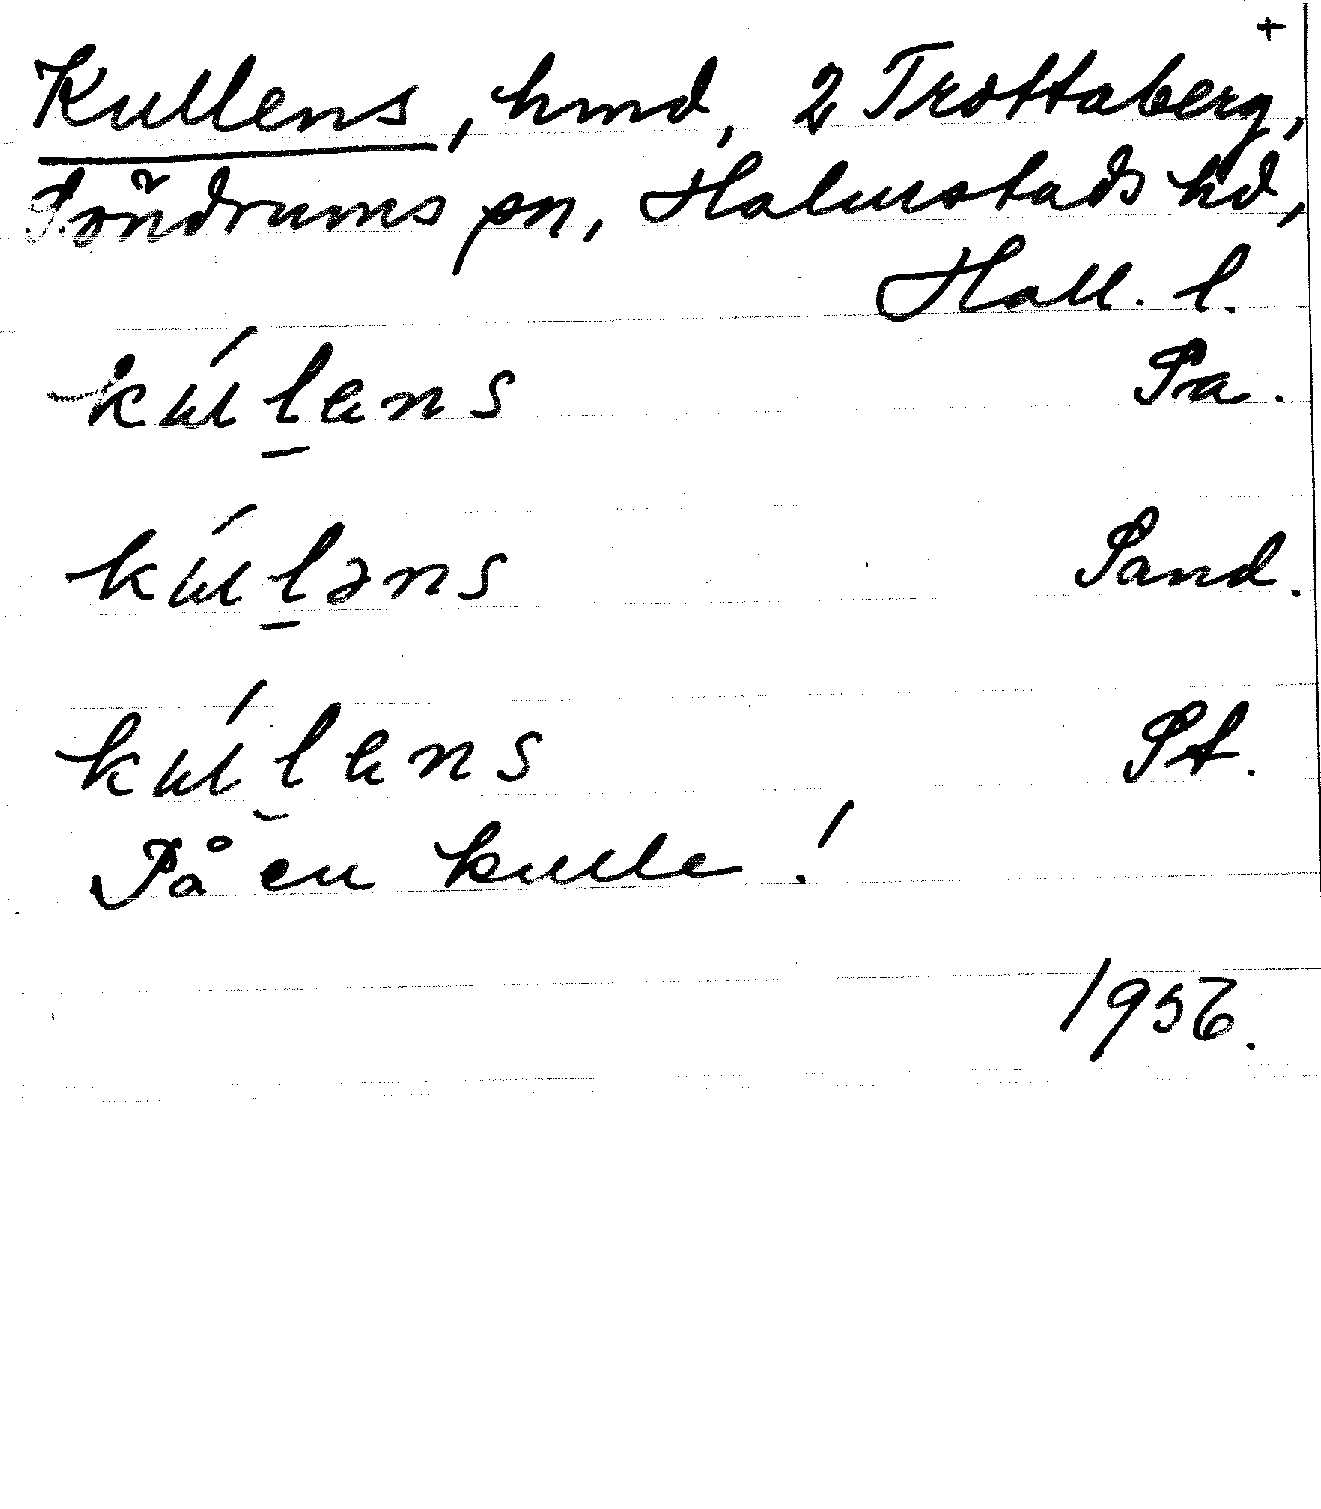 +
Kullens, hmd, 2 Trottaberg,
Söndrums sn, Halmstads hd,
Hall. l.
kúlens Pa.
kúləns Sand.
kúlens St.
På en kulle!
1956.